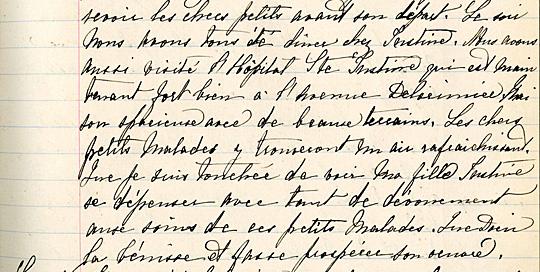 revoir les chers petits avant son départ. Le soir
Nous avons tous été diner chez Justine. Nous avons
aussi visité l'Hôpital Ste Justine qui est main
tenant fort bien à l'Avenue Delorimier. Mai
son spacieuse avec de beaux terrains. Les chers
petits Malades y trouveront un air rafraichissant.
Que je suis touchée de voir Ma fille Justine
se dépenser avec tant de dévouement
aux soins de ces petits Malades. Que Dieu
la bénisse et fasse prospérer son oeuvre.